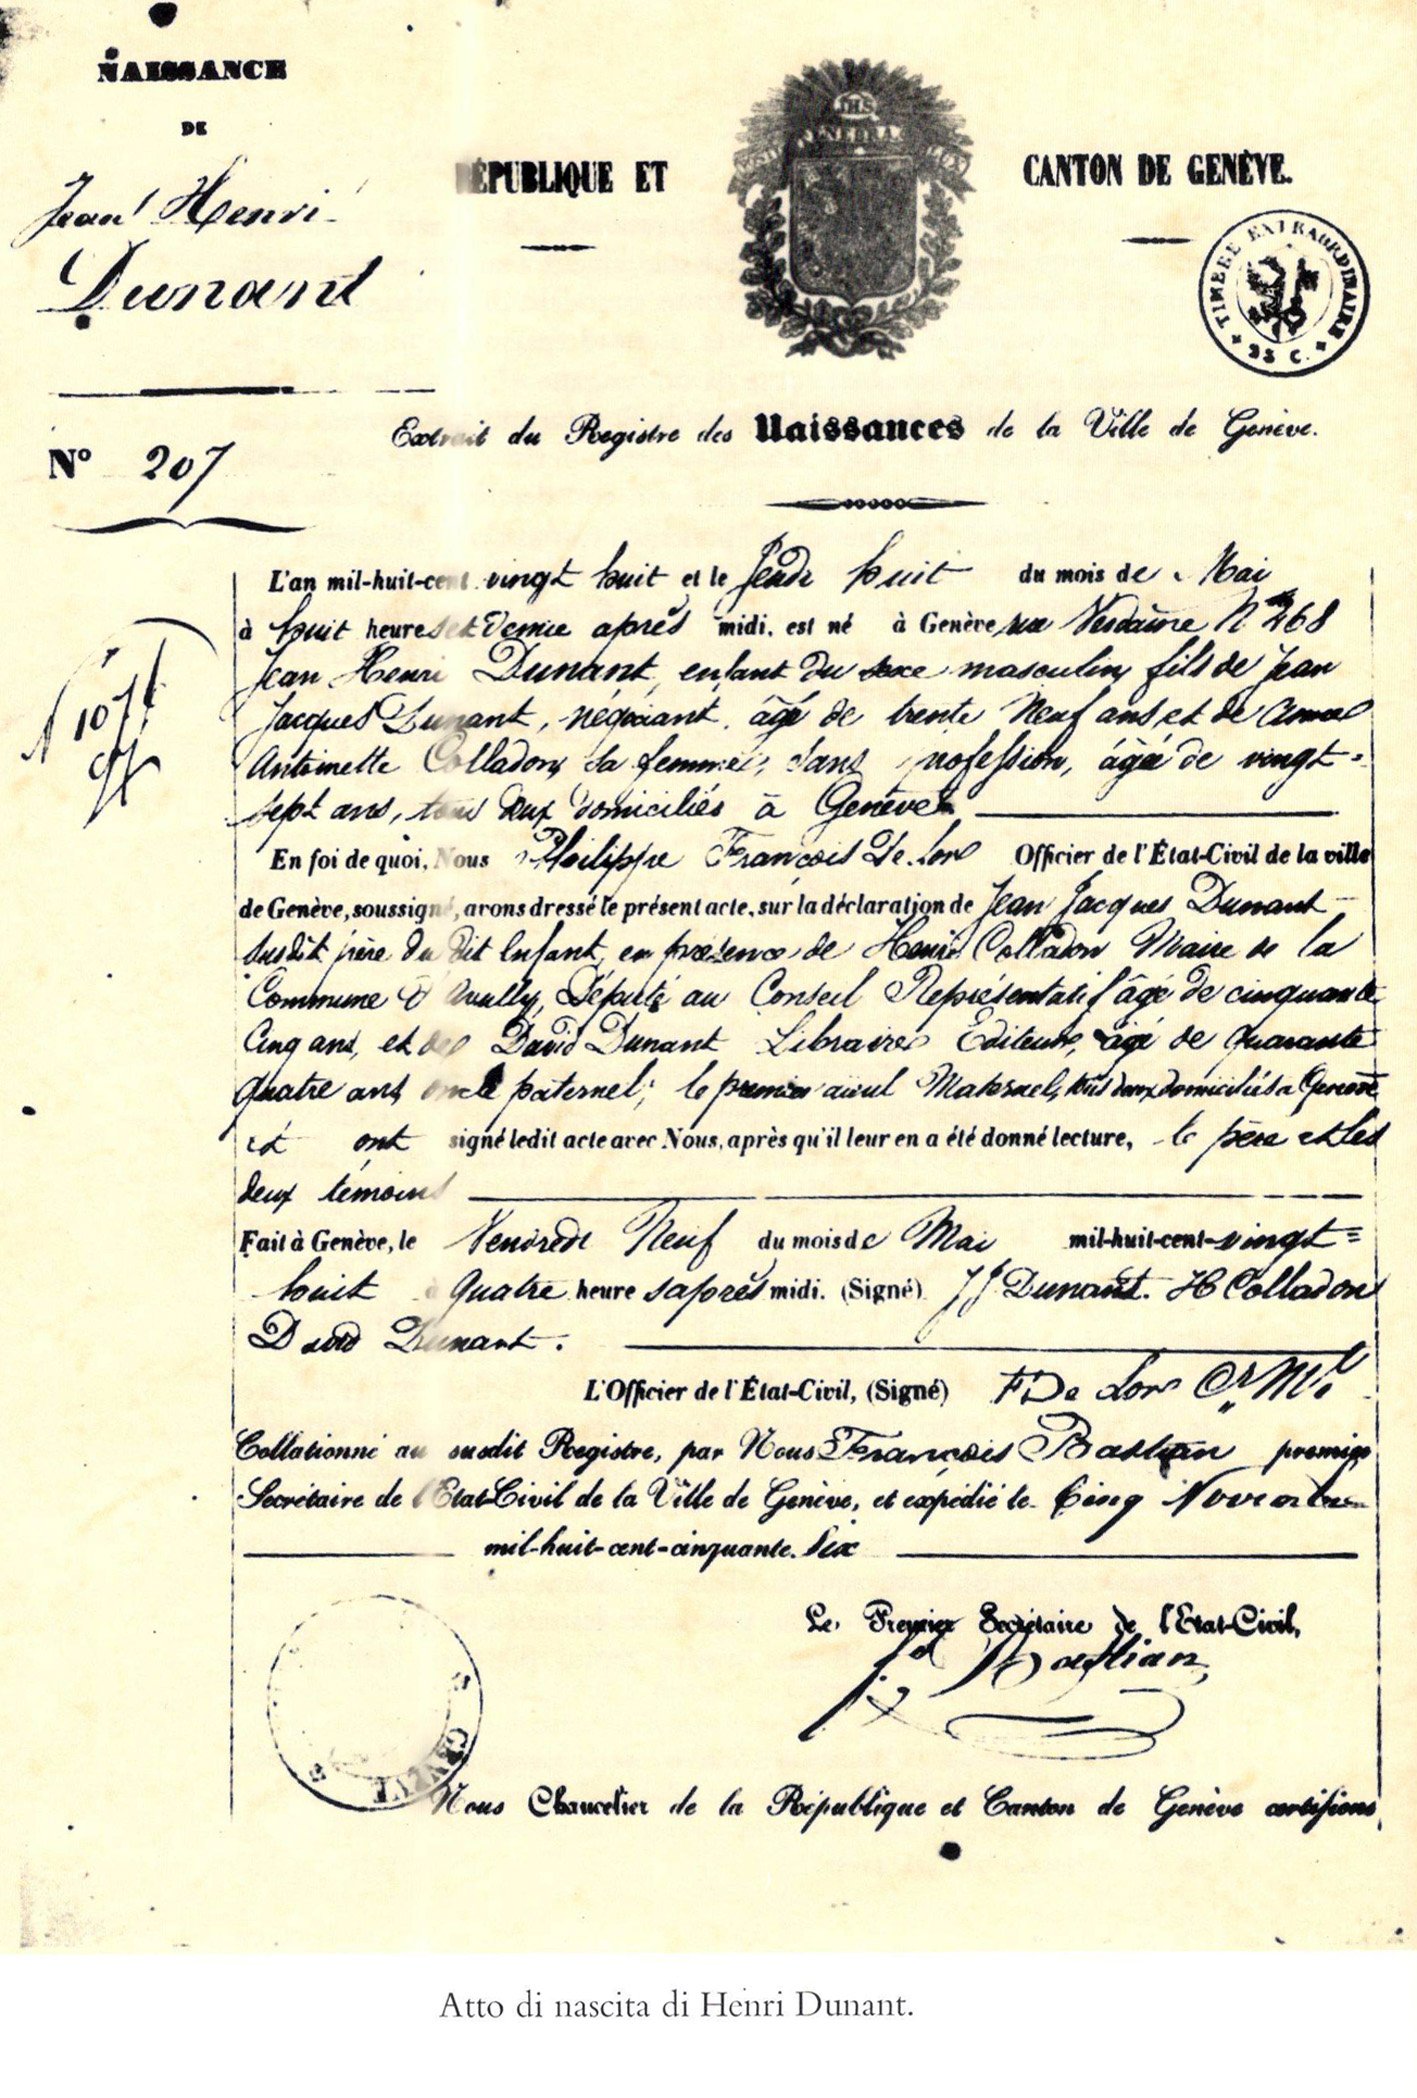 NAISSANCE
DE
Jean Henri
Dunant
RÉPUBLIQUE ET CANTON DE GENÈVE.
TIMBRE EXTRAORDINAIRE
25 C.
Nº 207
Extrait du Registre des Naissances de la Ville de Genève.
L'an mil-huit-cent vingt huit et le Jeudi huit du mois de Mai
à huit heures et demie après midi, est né à Genève rue Verdaine N 268
Jean Henri Dunant, enfant du sexe masculin, fils de Jean
Jacques Dunant, négociant, âgé de trente Neuf ans, et de Anne
Antoinette Colladon, sa femme, sans profession, âgée de vingt-
sept ans, tous deux domiciliés à Genève
En foi de quoi, Nous Philippe François De Lor Officier de l'État-Civil de la ville
de Genève, soussigné, avons dressé le présent acte, sur la déclaration de Jean Jacques Dunant
susdit père du dit Enfant, en présence de Henri Colladon Maire de la
Commune d'Avully, Député au Conseil Représentatif âgé de cinquante
Cinq ans, et de David Dunant Libraire Editeur, âgé de quarante
quatre ans, oncle paternel; le premier aïeul Maternel, tous deux domiciliés à Genève
et ont signé ledit acte avec Nous, après qu'il leur en a été donné lecture, le père et les
deux témoins
Fait à Genève, le Vendredi Neuf du mois de Mai mil-huit-cent-vingt=
huit à quatre heures après midi. (Signé) JJ Dunant. H Colladon
David Dunant.
L'Officier de l'État-Civil, (Signé) F De Lor
Collationné au susdit Registre, par Nous François Bastian premier
Secrétaire de l'Etat-Civil de la Ville de Genève, et expédié le Cinq Novembre
mil-huit-cent-cinquante. Six
Le Premier Secrétaire de l'Etat-Civil,
Bastian
GENÈVE
Nous Chancelier de la République et Canton de Genève certifions
Atto di nascita di Henri Dunant.